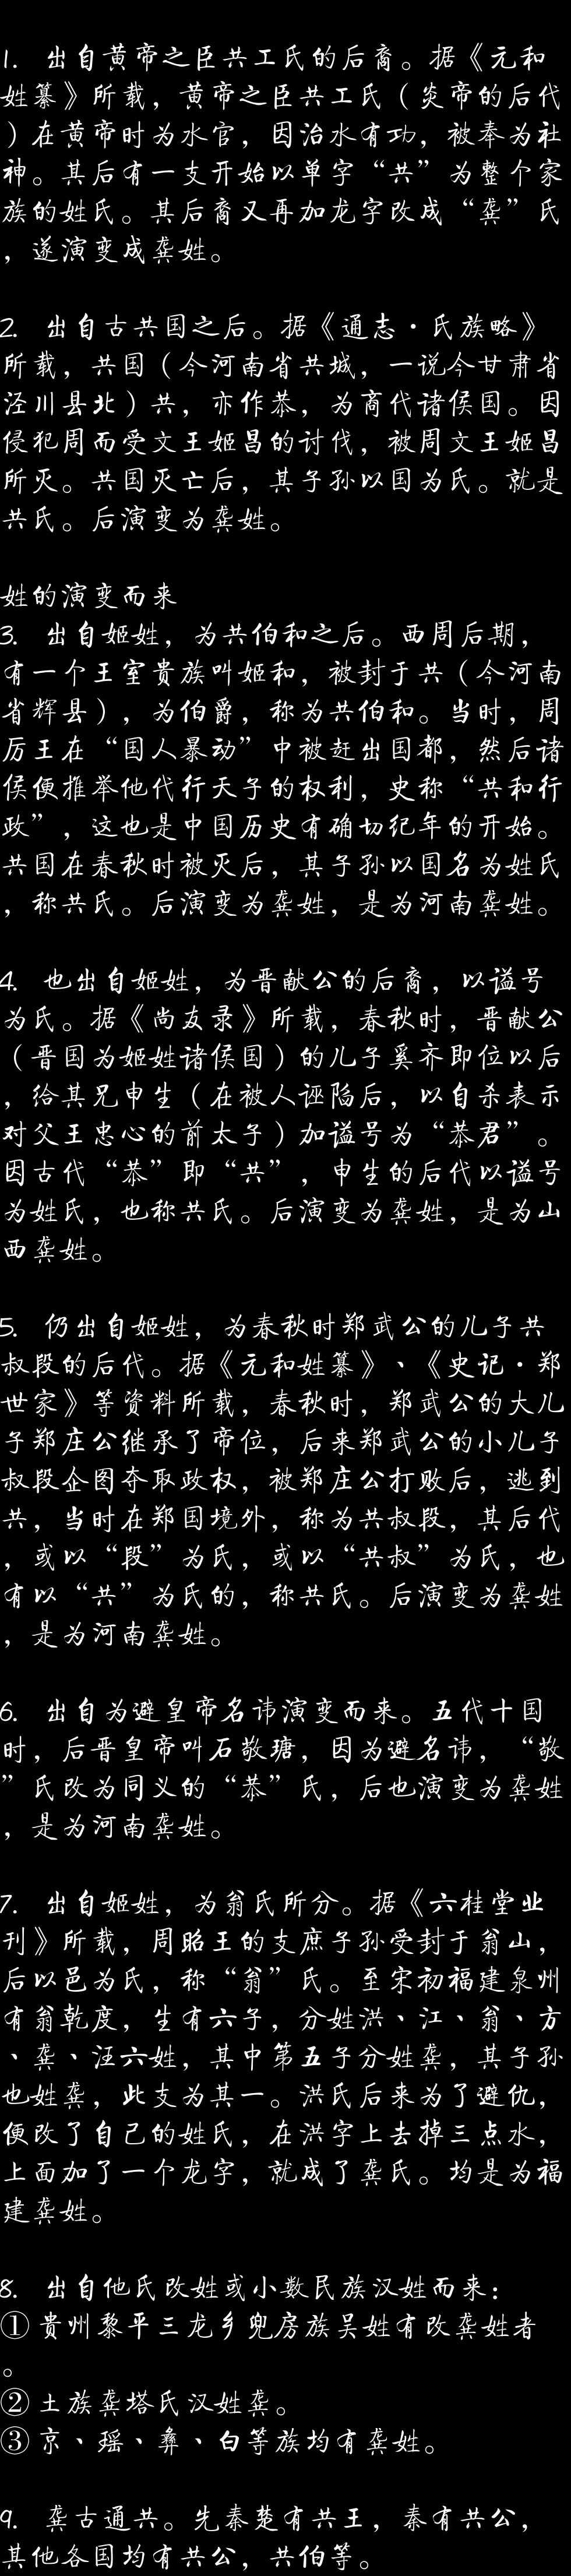 1. 出自黄帝之臣共工氏的后裔。据《元和
姓纂》所载，黄帝之臣共工氏（炎帝的后代
）在黄帝时为水官，因治水有功，被奉为社
神。其后有一支开始以单字“共”为整个家
族的姓氏。其后裔又再加龙字改成“龚”氏
，遂演变成龚姓。
2. 出自古共国之后。据《通志·氏族略》
所载，共国（今河南省共城，一说今甘肃省
泾川县北）共，亦作恭，为商代诸侯国。因
侵犯周而受文王姬昌的讨伐，被周文王姬昌
所灭。共国灭亡后，其子孙以国为氏。就是
共氏。后演变为龚姓。
姓的演变而来
3. 出自姬姓，为共伯和之后。西周后期，
有一个王室贵族叫姬和，被封于共（今河南
省辉县），为伯爵，称为共伯和。当时，周
厉王在“国人暴动”中被赶出国都，然后诸
侯便推举他代行天子的权利，史称“共和行
政”，这也是中国历史有确切纪年的开始。
共国在春秋时被灭后，其子孙以国名为姓氏
，称共氏。后演变为龚姓，是为河南龚姓。
4. 也出自姬姓，为晋献公的后裔，以谥号
为氏。据《尚友录》所载，春秋时，晋献公
（晋国为姬姓诸侯国）的儿子奚齐即位以后
，给其兄申生（在被人诬陷后，以自杀表示
对父王忠心的前太子）加谥号为“恭君”。
因古代“恭”即“共”，申生的后代以谥号
为姓氏，也称共氏。后演变为龚姓，是为山
西龚姓。
5. 仍出自姬姓，为春秋时郑武公的儿子共
叔段的后代。据《元和姓纂》、《史记·郑
世家》等资料所载，春秋时，郑武公的大儿
子郑庄公继承了帝位，后来郑武公的小儿子
叔段企图夺取政权，被郑庄公打败后，逃到
共，当时在郑国境外，称为共叔段，其后代
，或以“段”为氏，或以“共叔”为氏，也
有以“共”为氏的，称共氏。后演变为龚姓
，是为河南龚姓。
6. 出自为避皇帝名讳演变而来。五代十国
时，后晋皇帝叫石敬瑭，因为避名讳，“敬
”氏改为同义的“恭”氏，后也演变为龚姓
，是为河南龚姓。
7. 出自姬姓，为翁氏所分。据《六桂堂业
刊》所载，周昭王的支庶子孙受封于翁山，
后以邑为氏，称“翁”氏。至宋初福建泉州
有翁乾度，生有六子，分姓洪、江、翁、方
、龚、汪六姓，其中第五子分姓龚，其子孙
也姓龚，此支为其一。洪氏后来为了避仇，
便改了自己的姓氏，在洪字上去掉三点水，
上面加了一个龙字，就成了龚氏。均是为福
建龚姓。
8. 出自他氏改姓或小数民族汉姓而来：
① 贵州黎平三龙乡兜房族吴姓有改龚姓者
。
② 土族龚塔氏汉姓龚。
③ 京、瑶、彝、白等族均有龚姓。
9. 龚古通共。先秦楚有共王，秦有共公，
其他各国均有共公，共伯等。